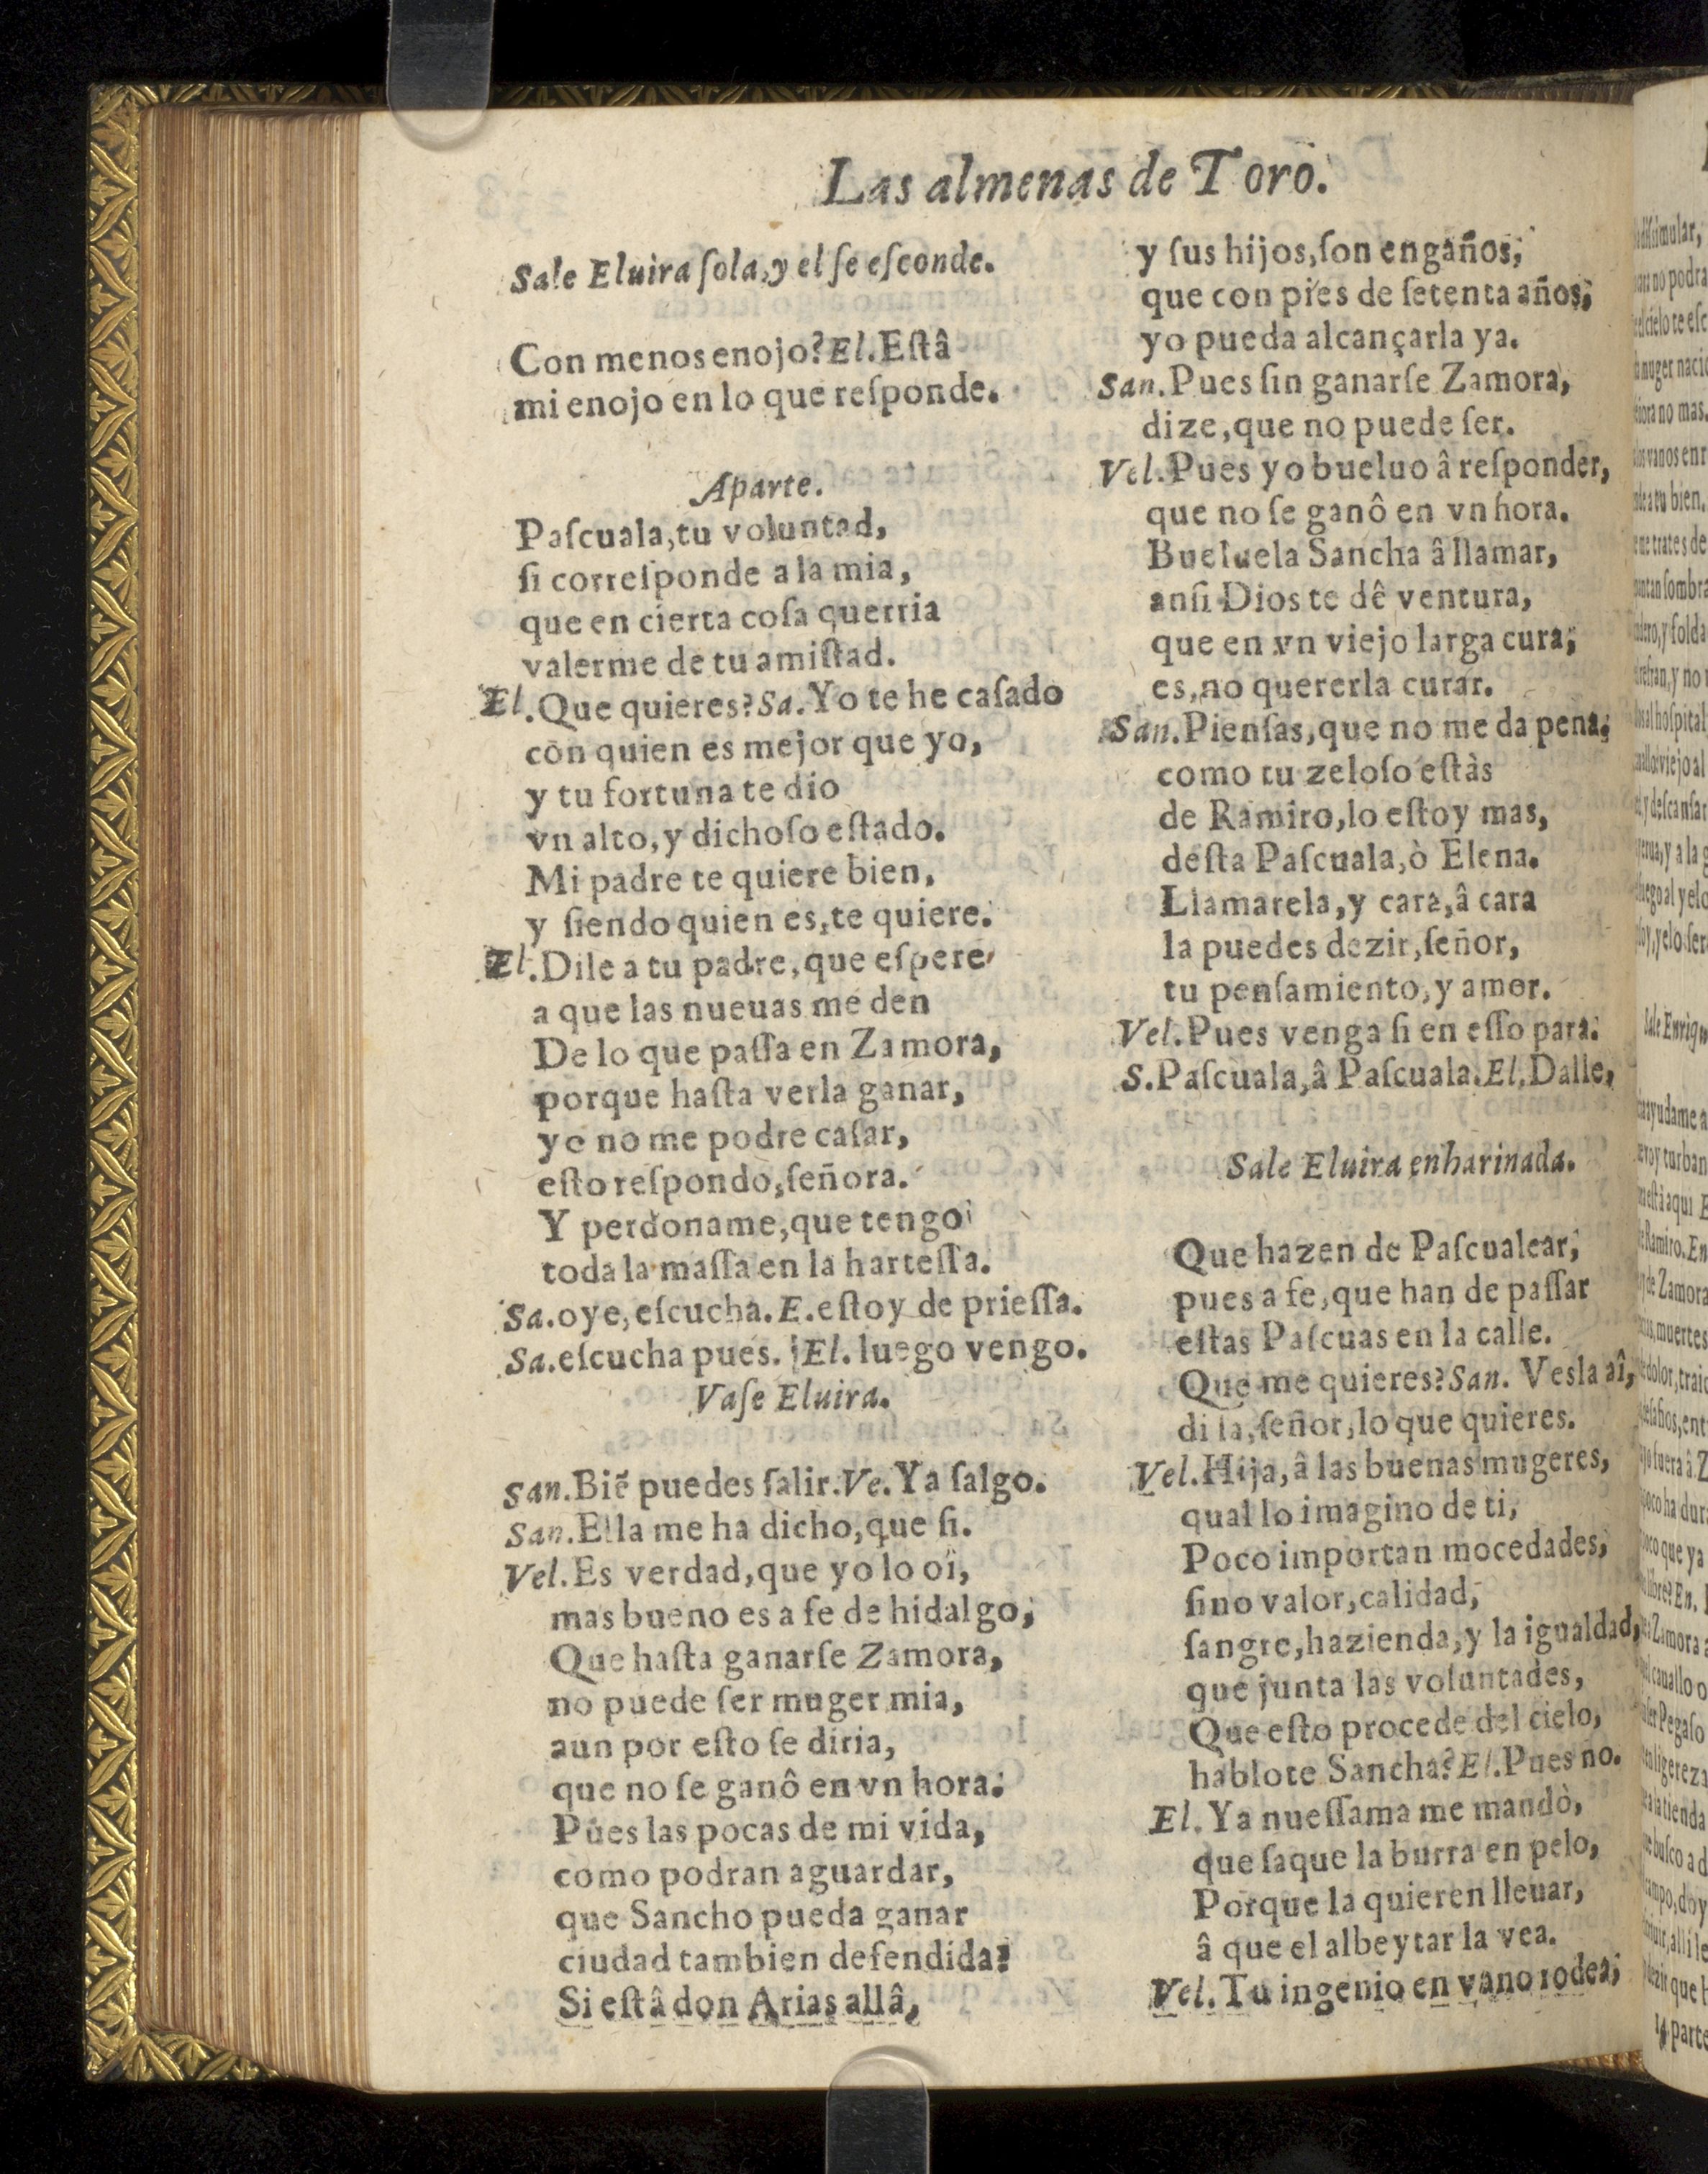 Las almenas de Toro.
Sale Eluira ſola, y el ſe eſconde.
Con menos enojo? El. Eſtâ
mi enojo en lo que reſponde.
Aparte.
Paſcuala, tu voluntad,
ſi correſponde a la mia,
que en cierta coſa querria
valerme de tu amiſtad.
El. Que quieres? Sa. Yo te he caſado
con quien es mejor que yo,
y tu fortuna te dio
vn alto, y dichoſo eſtado.
Mi padre te quiere bien,
y ſiendo quien es, te quiere.
El. Dile a tu padre, que eſpere
a que las nueuas me den
De lo que paſſa en Zamora,
porque haſta verla ganar,
yo no me podre caſar,
eſto reſpondo, ſeñora.
Y perdoname, que tengo
toda la maſſa en la harteſſa.
Sa. oye, eſcucha. E. eſtoy de prieſſa.
Sa. eſcucha pues. El. luego vengo.
Vaſe Eluira.
San. Biẽ puedes ſalir. Ve. Ya ſalgo.
San. Ella me ha dicho, que ſi.
Vel. Es verdad, que yo lo oî,
mas bueno es a fe de hidalgo,
Que haſta ganarſe Zamora,
no puede ſer muger mia,
aun por eſto ſe diria,
que no ſe ganô en vn hora.
Pues las pocas de mi vida,
como podran aguardar,
que Sancho pueda ganar
ciudad tambien defendida?
Si eſtâ don Arias allâ,
y ſus hijos, ſon engaños,
que con pies de ſetenta años,
yo pueda alcançarla ya.
San. Pues ſin ganarſe Zamora,
dize, que no puede ſer.
Vel. Pues yo bueluo â reſponder,
que no ſe ganô en vn hora.
Bueluela Sancha â llamar,
anſi Dios te dê ventura,
que en vn viejo larga cura,
es, no quererla curar.
San. Pienſas, que no me da pena,
como tu zeloſo eſtàs
de Ramiro, lo eſtoy mas,
deſta Paſcuala, ò Elena.
Llamarela, y cara, â cara
la puedes dezir, ſeñor,
tu penſamiento, y amor.
Vel. Pues venga ſi en eſſo para.
S. Paſcuala, â Paſcuala. El. Dalle,
Sale Eluira enharinada.
Que hazen de Paſcualear,
pues a fe, que han de paſſar
eſtas Paſcuas en la calle.
Que me quieres? San. Vesla aî,
di la, ſeñor, lo que quieres.
Vel. Hija, â las buenas mugeres,
qual lo imagino de ti,
Poco importan mocedades,
ſino valor, calidad,
ſangre, hazienda, y la igualdad,
que junta las voluntades,
Que eſto procede del cielo,
hablote Sancha? El. Pues no.
El. Ya nueſſama me mandò,
que ſaque la burra en pelo,
Porque la quieren lleuar,
â que el albeytar la vea.
Vel. Tu ingenio en vano rodea,